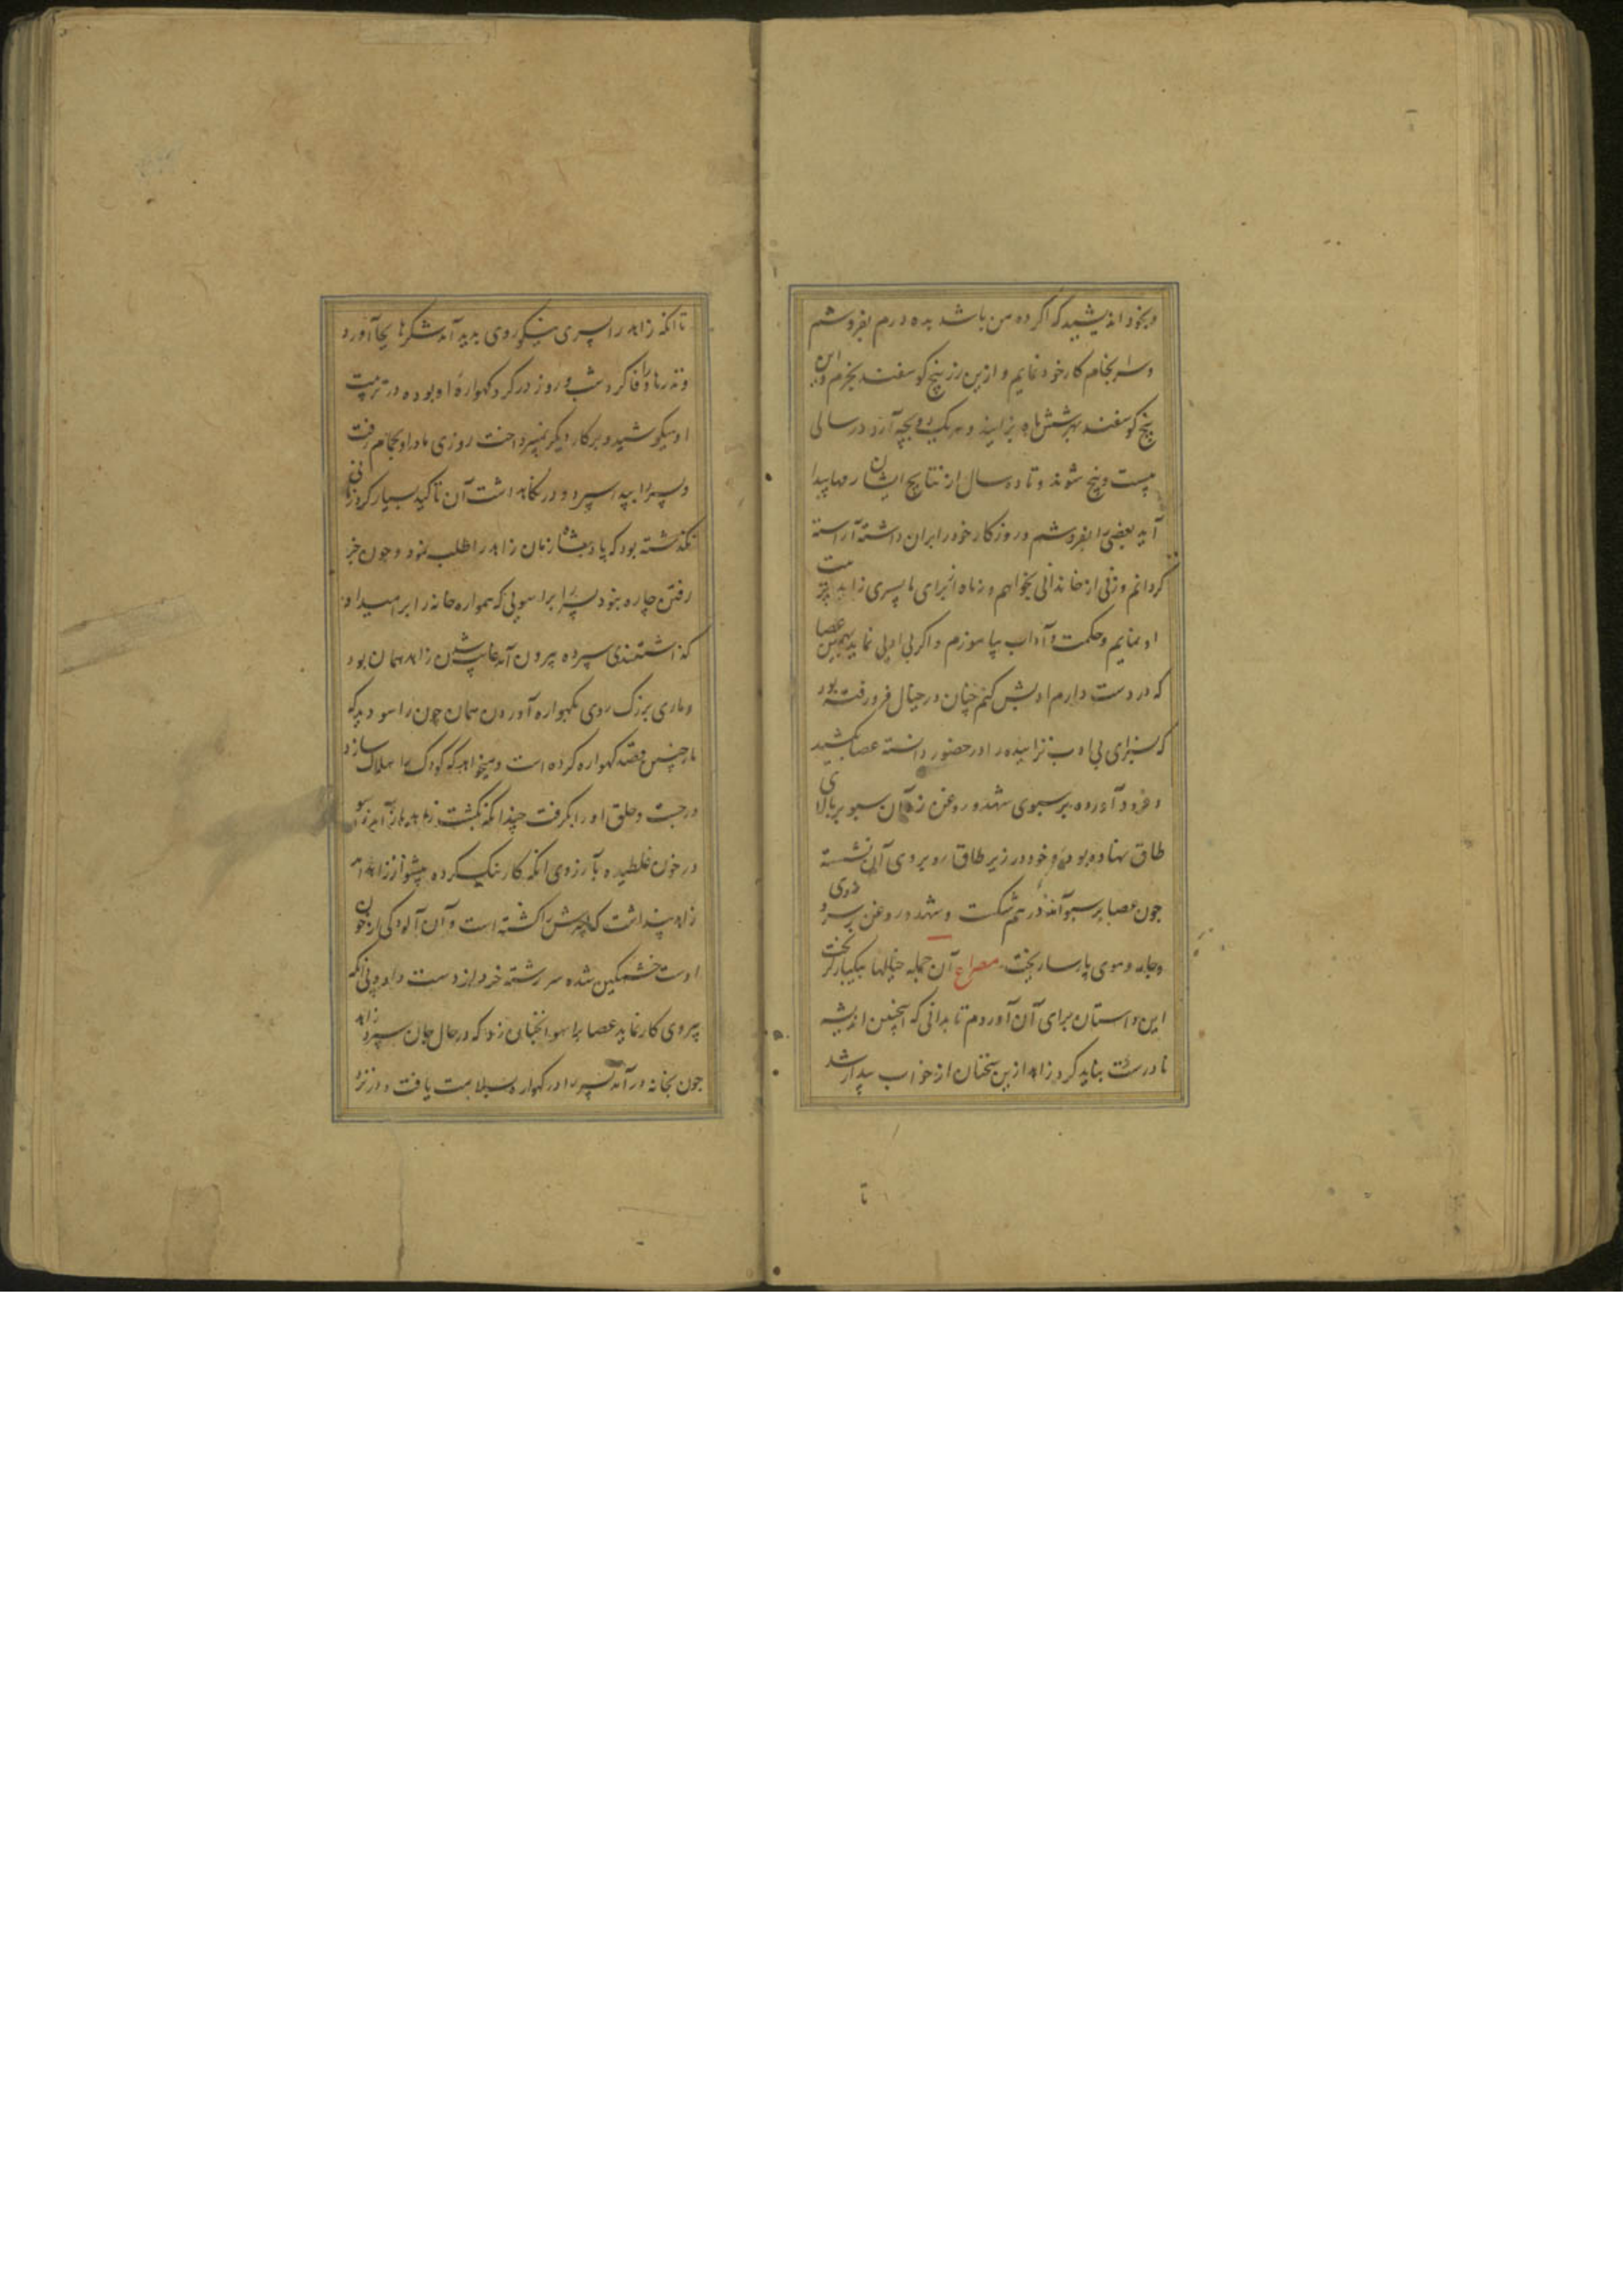 و بخود اندیشید که اگر ده من باشد بده درم بفروشم
و سرانجام کار خود نمایم و ازین زر پنج کوسفند بخرم و این
پنج کوسفند بهر شش ماه بزایند و هر یک دو بچه آرد در سالی
بیست و پنج شوند و تا ده سال از نتایج ایشان رمها پیدا
آید بعضی را بفروشم و روزکار خود را بران داشته آراسته
کردانم و زنی از خاندانی بخواهم و نه ماه برای ما پسری زاید تربیت
او نمایم و حکمت و آداب بیاموزم و اکر بی ادبی نماید بهمین عصا
که در دست دارم ادبش کنم چنان در خیال فرو رفته بود
که پسرای بی ادب نزاییده را در حضور دانسته عصا کشید
و فرود آورده بر سبوی شهد و روغن زد آن سبو بر بالای
طاق نهاده بود و خود در زیر طاق رو بروی آن نشسته
چون عصا بر سبو آمد در هم شکست و شهد و روغن بر سر و روی
و جامه و موی پارسا ریخت مصراع آن جمله خیالها بیکبار کریخت
این داستان برای آن آوردم تا بدانی که اینچنین اندیشه
نادرست نباید کرد زاهد ازین سخنان از خواب بیدار شد
تا
تا انکه زاهد را پسری نیکوروی پدید آمد شکرها بجا آورد
و نذرها را وفا کرد شب و روز در کرد کهواره او بوده در تربیت
او میکوشید و بر کار دیکر نمیپرداخت روزی مادر او بحمام رفت
و پسر را بپدر سپرد و در نکاهداشت آن تاکید بسیار کرد زمانی
نکذشته بود که پادشاه زمان زاهد را طلب نمود و چون جز
رفتن چاره نبود پسر را براسویی که همواره خانه را برو میداد
کذاشتندی سپرده بیرون آمد غایب شدن زاهد همان بود
و ماری بزرک روی بکهواره آوردن همان چون راسو دید که
مار چنین قصد کهواره کرده است و میخواهد که کودک را هلاک سازد
درجست و حلق او را بکرفت چندانکه بکشت زاهد باز آمد راسو
در خون غلطیده بآرزوی انکه کار نیک کرده پیشواز زاهد آمد
زاهد پنداشت که پسرش را کشته است و آن آلودکی از خون
اوست خشمکین شده سر رشته خرد از دست داد و بی انکه
پیروی کار نماید عصا براسو انچنان زد که در حال جان سپرد زاهد
چون بخانه درآمد پسر را در کهواره بسلامت یافت و در نزد